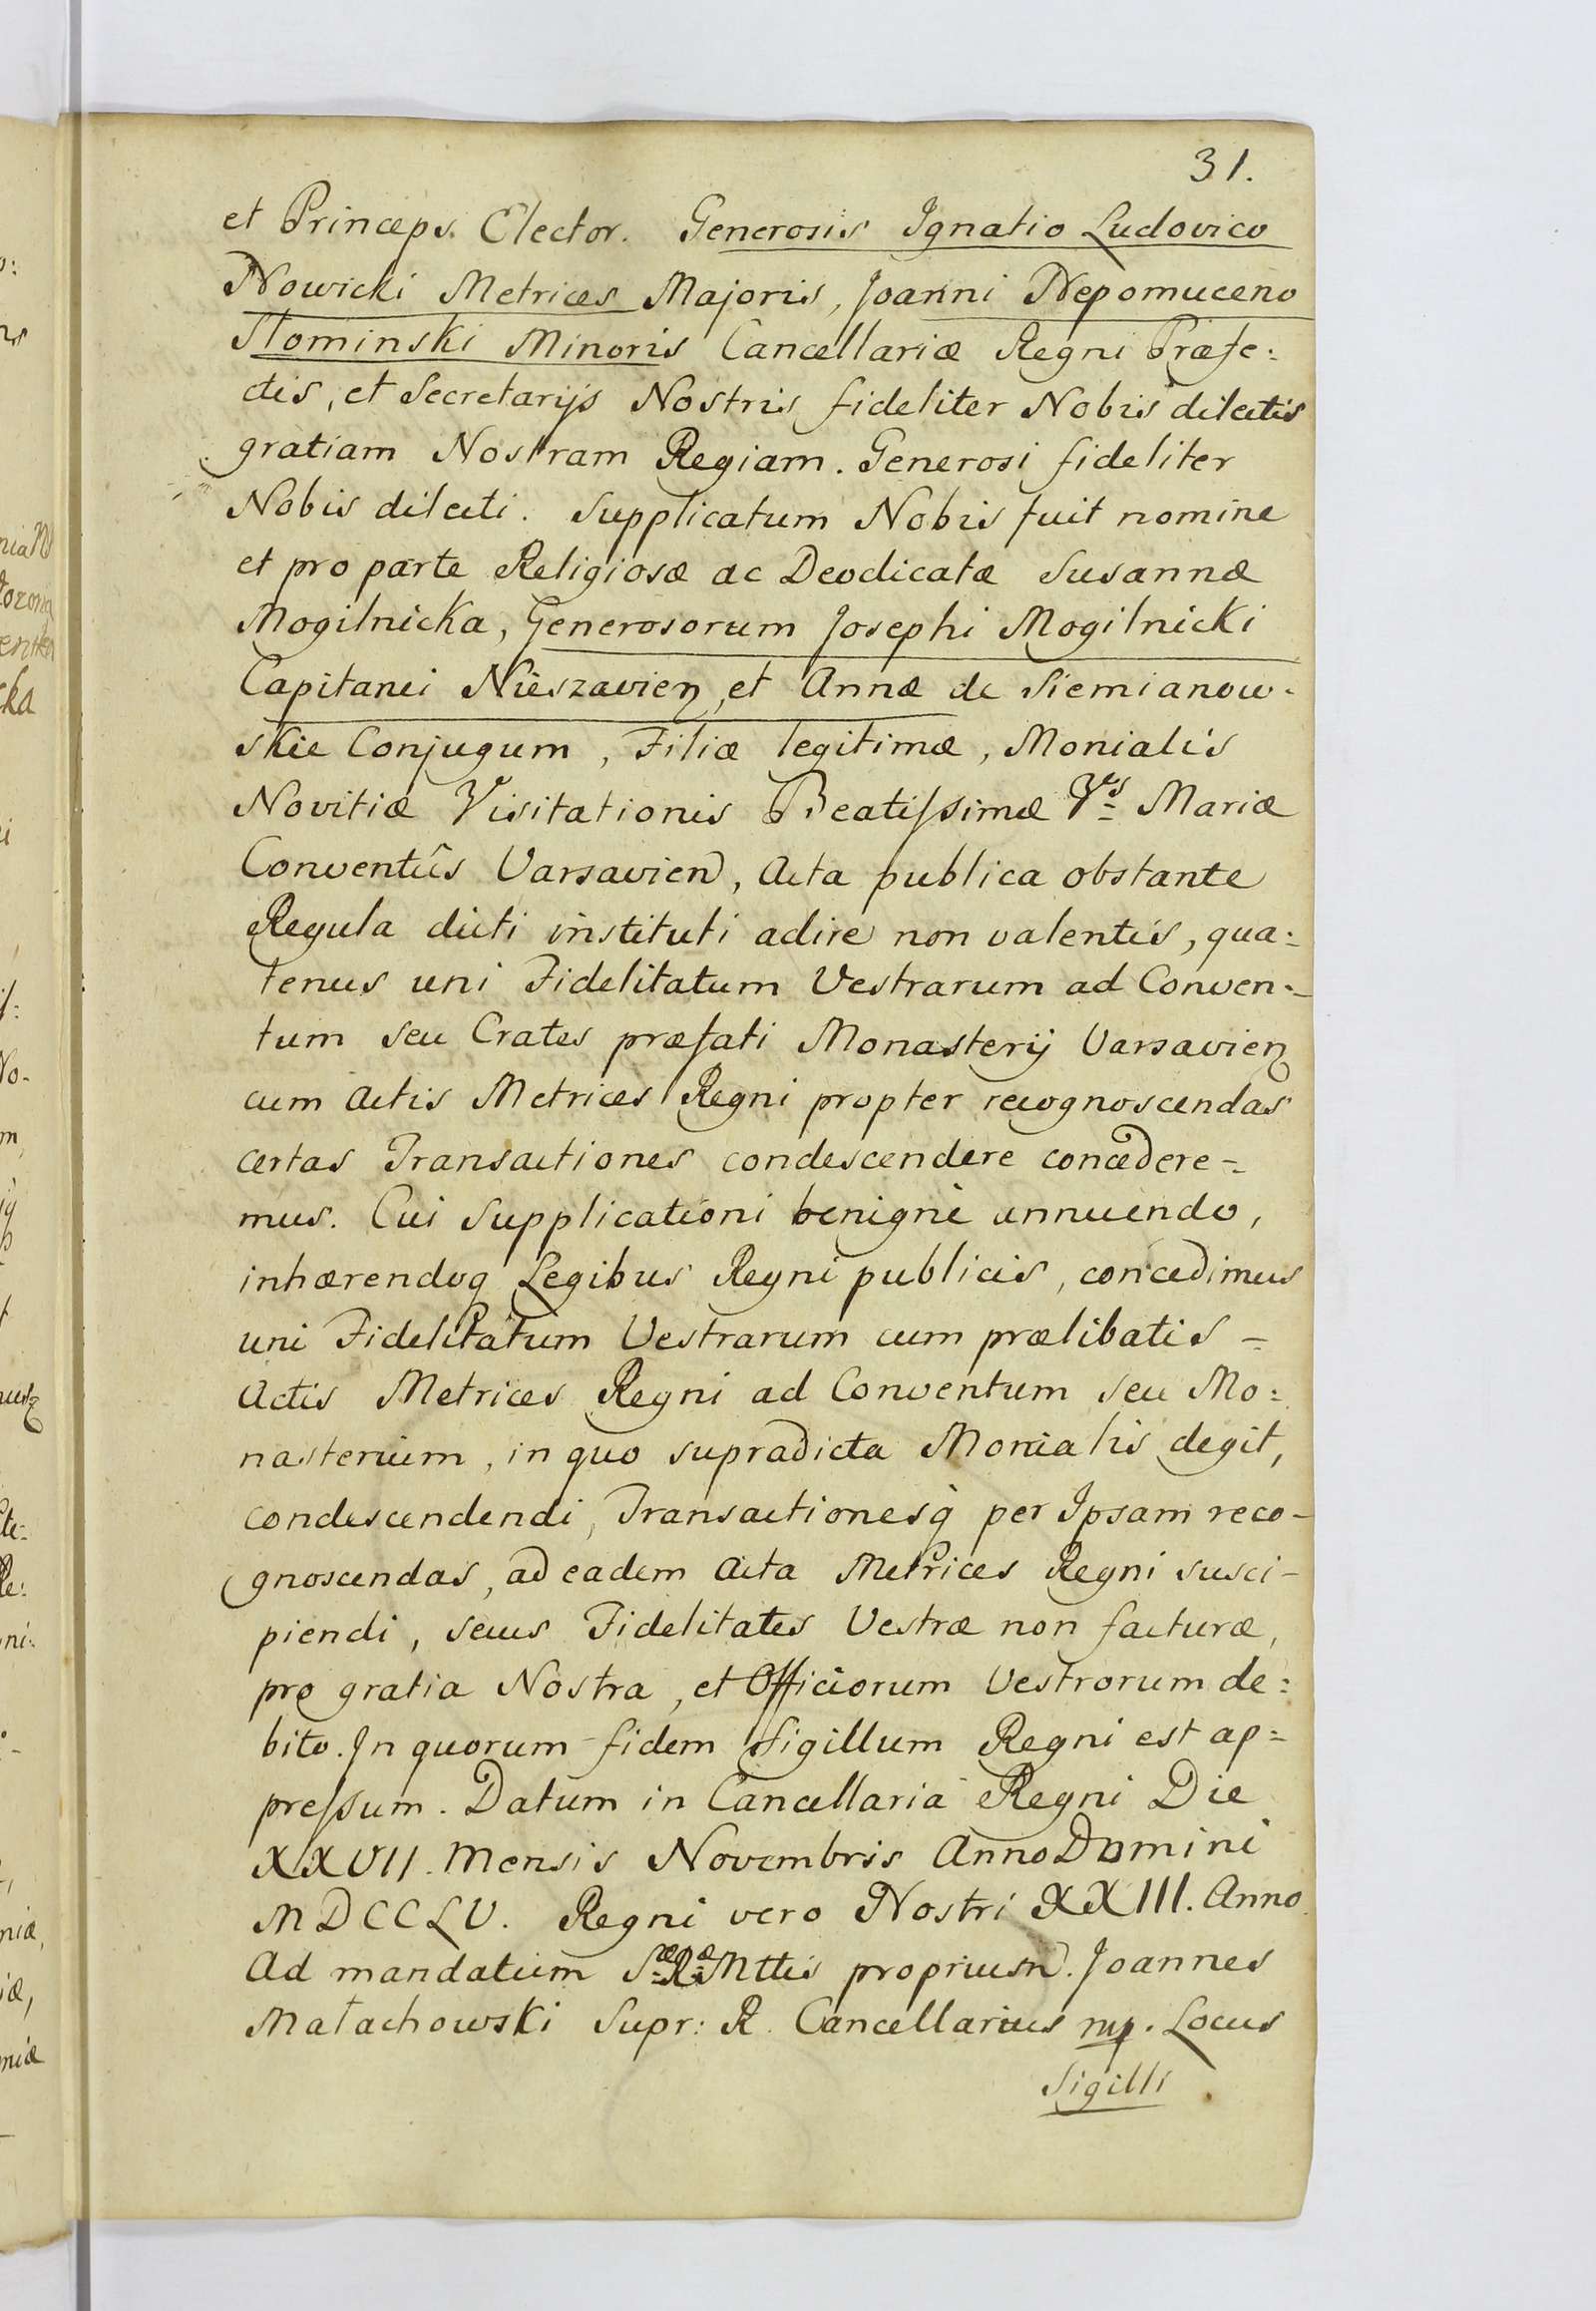 31.
et Princeps Elector. Generosis Ignatio Ludovico
Nowicki Metrices Majoris, Joanni Nepomuceno
Słominski Minoris Cancellariæ Regni Præfe:
ctis, et Secretarijs Nostris fideliter Nobis dilectis
gratiam Nostram Regiam. Generosi fideliter
Nobis dilecti. Supplicatum Nobis fuit nomine
et pro parte Religiosæ ac Deodicatæ Susannæ
Mogilnicka, Generosorum Josephi Mogilnicki
Capitanei Nieszavien, et Annæ de Siemianow-
skie Conjugum, Filiæ legitimæ, Monialis
Novitiæ Visitationis Beatissimæ Vis Mariæ
Conventûs Varsavien, Acta publica obstante
Regula dicti instituti adire non valentis, qua:
tenus uni Fidelitatum Vestrarum ad Conven-
tum seu Crates præfati Monasterij Varsavien
cum Actis Metrices Regni propter recognoscendas
certas Transactiones condescendere concedere-
mus. Cui Supplicationi benignè annuendo,
inhærendoq Legibus Regni publicis, concedimus
uni Fidelitatum Vestrarum cum prælibatis -
Actis Metrices Regni ad Conventum seu Mo:
nasterium, in quo supradicta Monialis degit,
condescendendi, Transactionesq́ per Ipsam reco-
gnoscendas, ad eadem Acta Metrices Regni susci-
piendi, secus Fidelitates Vestræ non facturæ,
pro gratia Nostra, et Officiorum Vestrorum de:
bito. In quorum fidem Sigillum Regni est ap=
pressum. Datum in Cancellaria Regni Die
XXVII. Mensis Novembris Anno Domini
MDCCLV. Regni vero Nostri XXIII. Anno
Ad mandatum Sæ Ræ Mttis proprium. Joannes
Małachowski Supr: R. Cancellarius mp. Locus
Sigilli